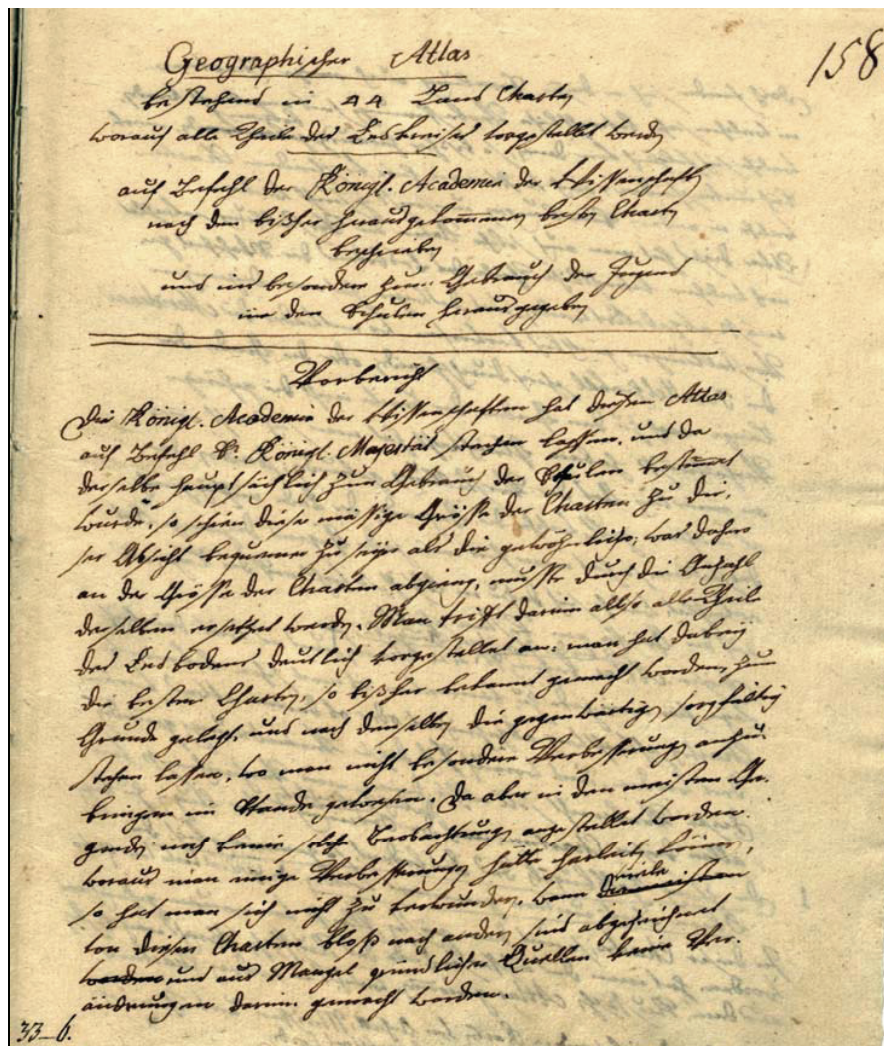 158
Geographischer Atlas
bestehend in 44 Land Charten
worauf alle Theile des Erdkreises vorgestellet werden
auf Befehl der Königl. Academie der Wissenschafften
nach den bißher herausgekommenen besten Charten
beschrieben
und ins besondere zum Gebrauch der Jugend
in den Schulen herausgegeben
Vorbericht
Die Königl. Academie der Wissenschafften hat diesen Atlas
auf Befehl Sr. Königl. Majestät stechen lassen, und da
derselbe hauptsächlich zum Gebrauch der Schulen bestimmt
wurde, so schien diese mässige Grösse der Charten zu die-
ser Absicht bequemer zu seyn als die gewöhnliche; was daher
an der Grösse der Charten abgieng, musste durch die Anzahl
derselben ersetzet werden. Man trifft darinn also alle Theile
des Erdbodens deutlich vorgestellet an: man hat dabey
die besten Charten, so bißher bekannt gemacht worden, zum
Grunde gelegt, und nach denselben die gegenwärtigen sorgfältig
stechen lassen, wo man nicht besondere Verbesserungen anzu-
bringen im Stande gewesen. Da aber in den meisten Ge-
genden noch keine solche Beobachtungen angestellet worden,
woraus man einige Verbesserungen hätte herleiten können,
so hat man sich nicht zu verwundern, wenn die meisten viele
von diesen Charten bloß nach andern sind abgezeichnet
worden und aus Mangel gründlicher Quellen keine Ver-
änderungen darinn gemacht worden.
33_6.